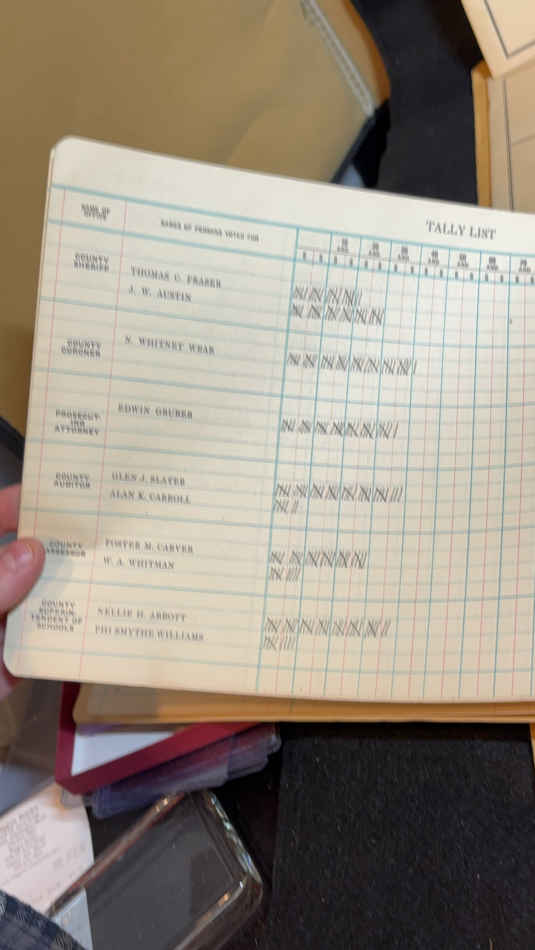 TALLY LIST
NAME OF OFFICE
NAMES OF PERSONS VOTED FOR
COUNTY SHERIFF
THOMAS C. FRASER
J. W. AUSTIN
COUNTY CORONER
N. WHITNEY WEAR
PROSECUT-
ING
ATTORNEY
EDWIN GRUBER
COUNTY AUDITOR
GLEN J. SLATER
ALAN K. CARROLL
COUNTY ASSESSOR
FOSTER M. CARVER
W. A. WHITMAN
COUNTY
SUPERIN-
TENDENT OF
SCHOOLS
NELLIE H. ABBOTT
PHI SMYTHE WILLIAMS